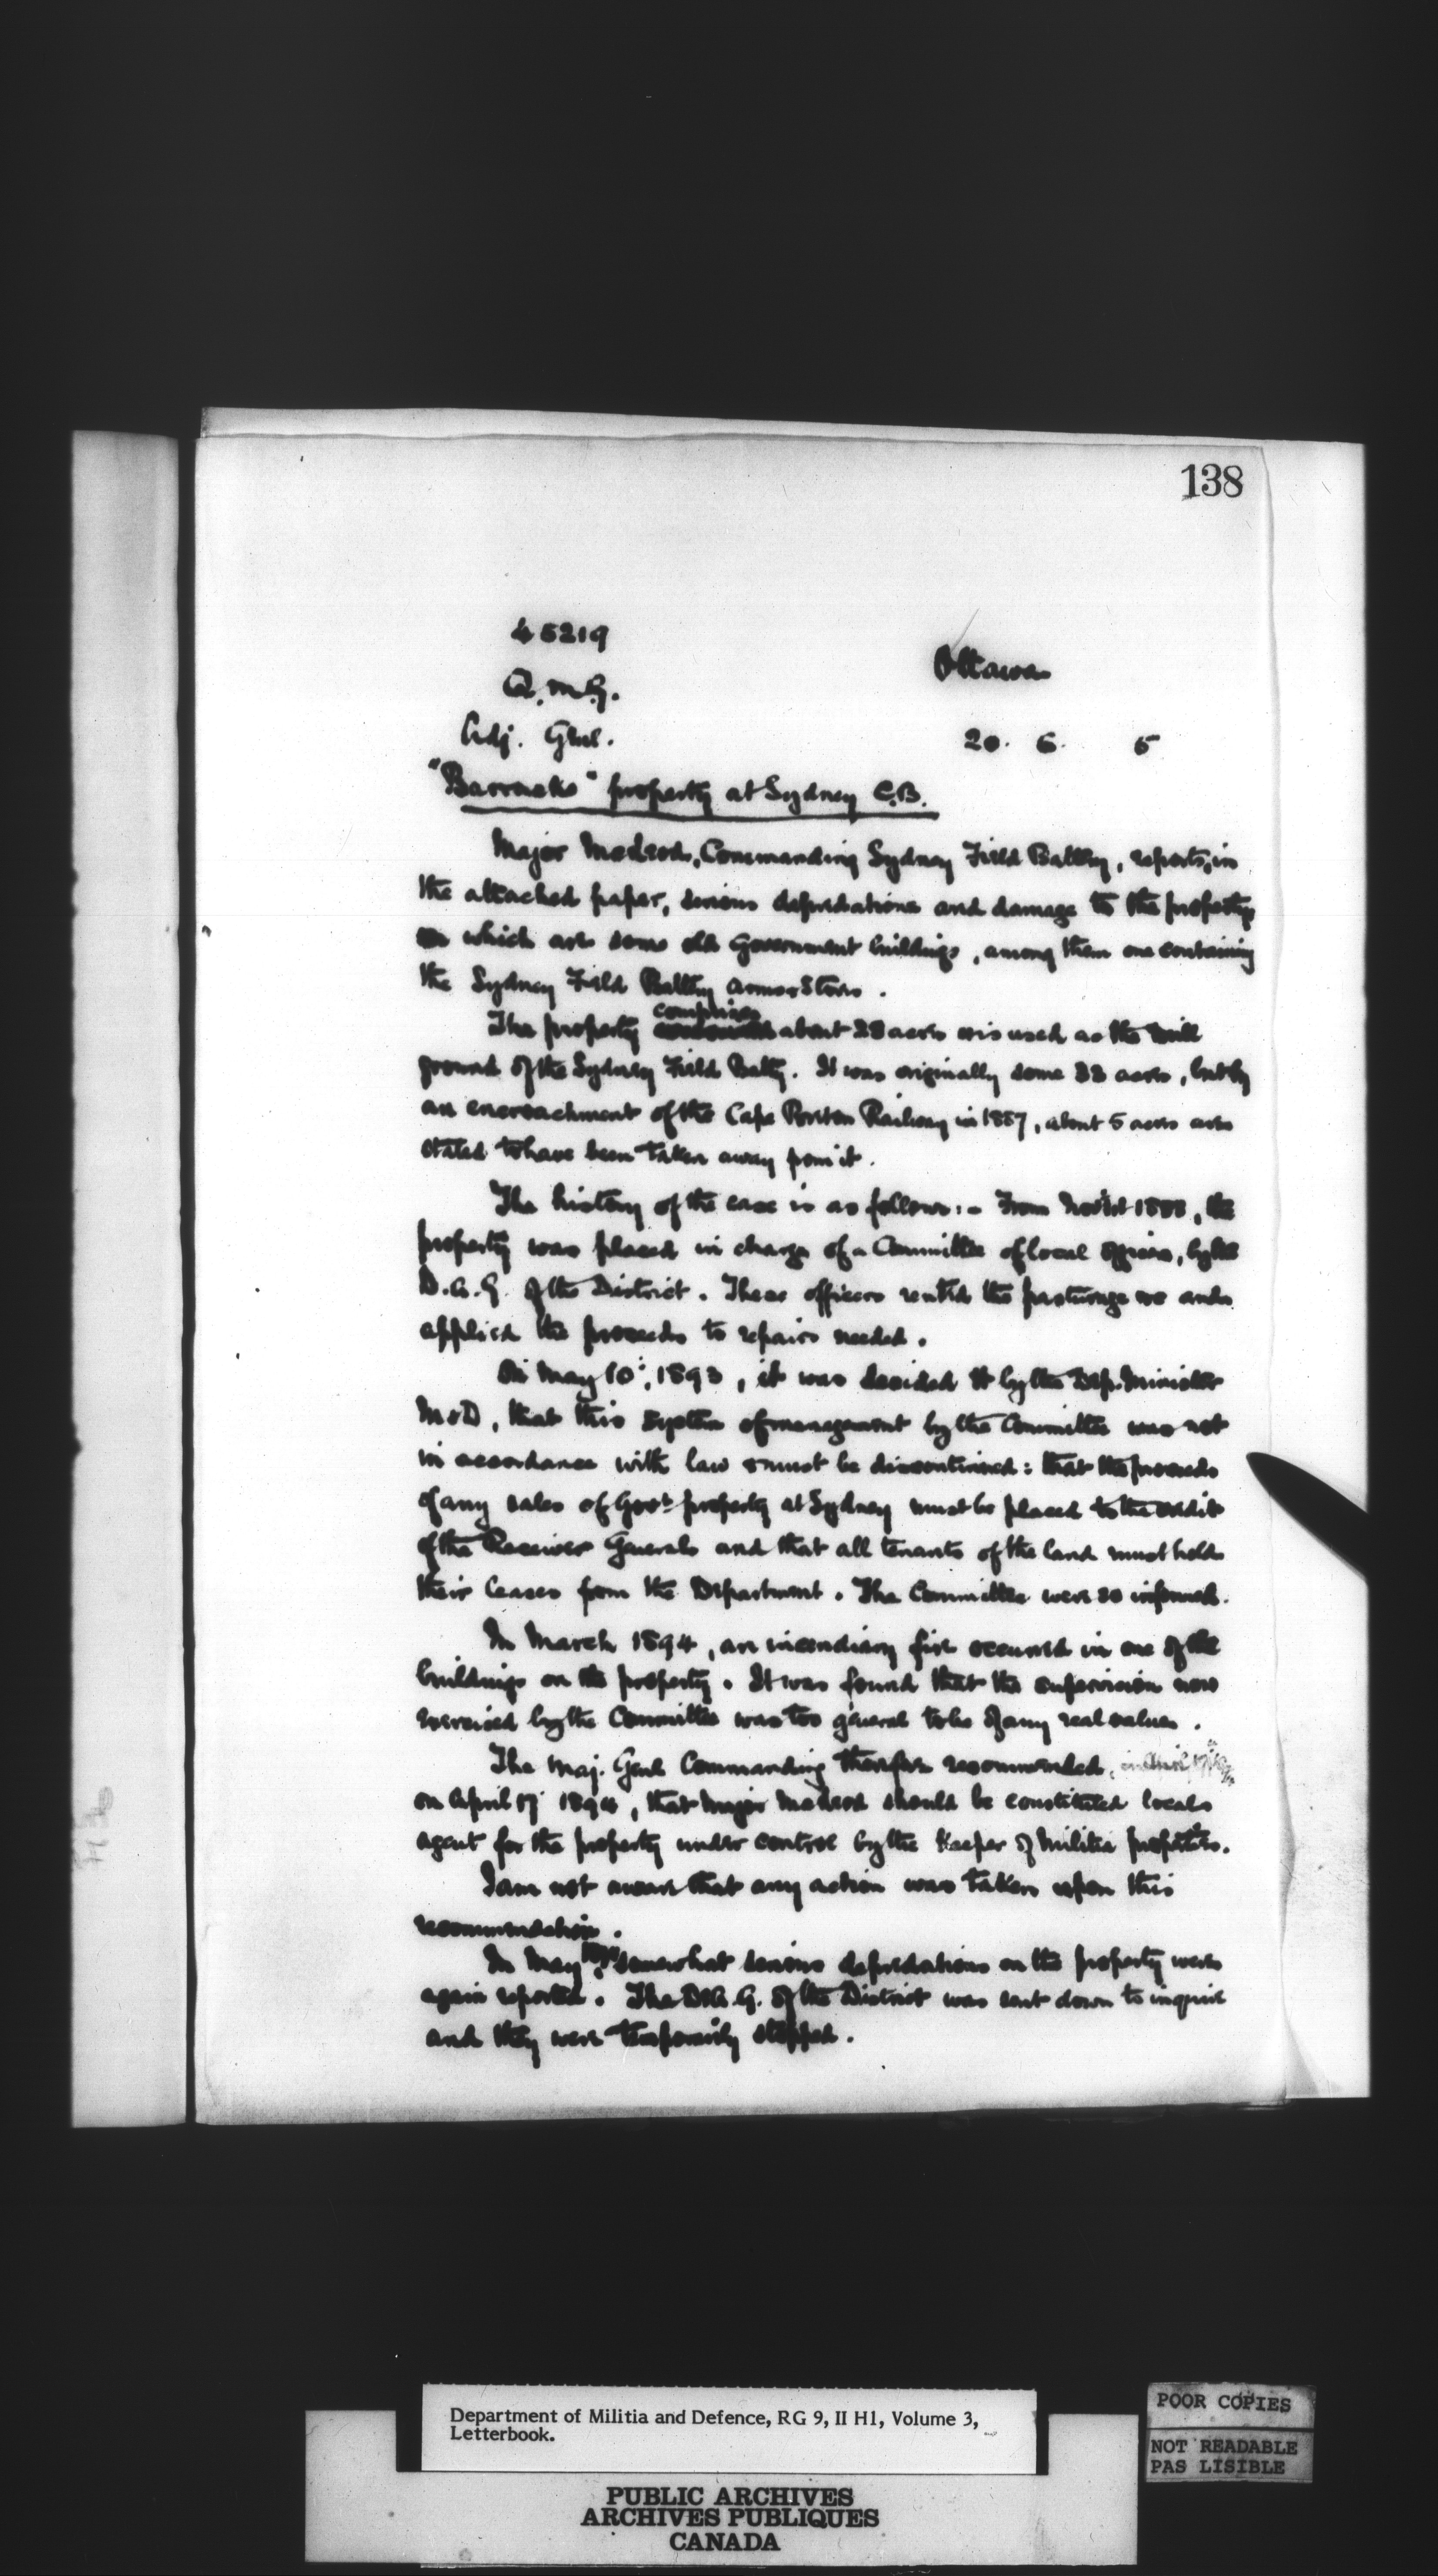 138
45219
Q.M.G.
Ottawa
Adj. Genl.
20. 6. 5
"Barracks" property at Sydney C.B.
Major McLeod, Commanding Sydney Field Battery, reports, in
the attached paper, serious depredations and damage to the property,
on which are some old Government buildings, among them one containing
the Sydney Field Battery Stores.
comprises
The property about 28 acres is used as the drill
ground of the Sydney Field Batty. It was originally some 33 acres, but by
an encroachment of the Cape Breton Railway in 1887, about 5 acres are
stated to have been taken away from it.
The history of the case is as follows:- From 1888, the
property was placed in charge of a Committee of local officers, by the
D.A.G. of the District. These officers rented the pasturage and
applied the proceeds to repairs needed.
On May 10, 1893, it was decided by the Dep. Minister
M&D, that this system of management by the Committee was not
in accordance with law & must be discontinued: that the proceeds
of any sales of Govt property at Sydney must be placed to the credit
of the Receiver General and that all tenants of the land must hold
their leases from the Department. The Committee were so informed.
In March 1894, an incendiary fire occurred in one of the
buildings on the property. It was found that the supervision now
exercised by the Committee was too general to be of any real value.
The Maj. Genl Commanding therefore recommended,
on April 17 1894, that Major McLeod should be constituted local
agent for the property under control by the Keeper of Militia properties.
I am not aware that any action was taken upon this
recommendation.
In May somewhat serious depredations on the property were
again reported. The D.A.G. of the District was sent down to inquire
and they were temporarily stopped.
Department of Militia and Defence, RG 9, II H1, Volume 3,
Letterbook.
POOR COPIES
NOT READABLE
PAS LISIBLE
PUBLIC ARCHIVES
ARCHIVES PUBLIQUES
CANADA